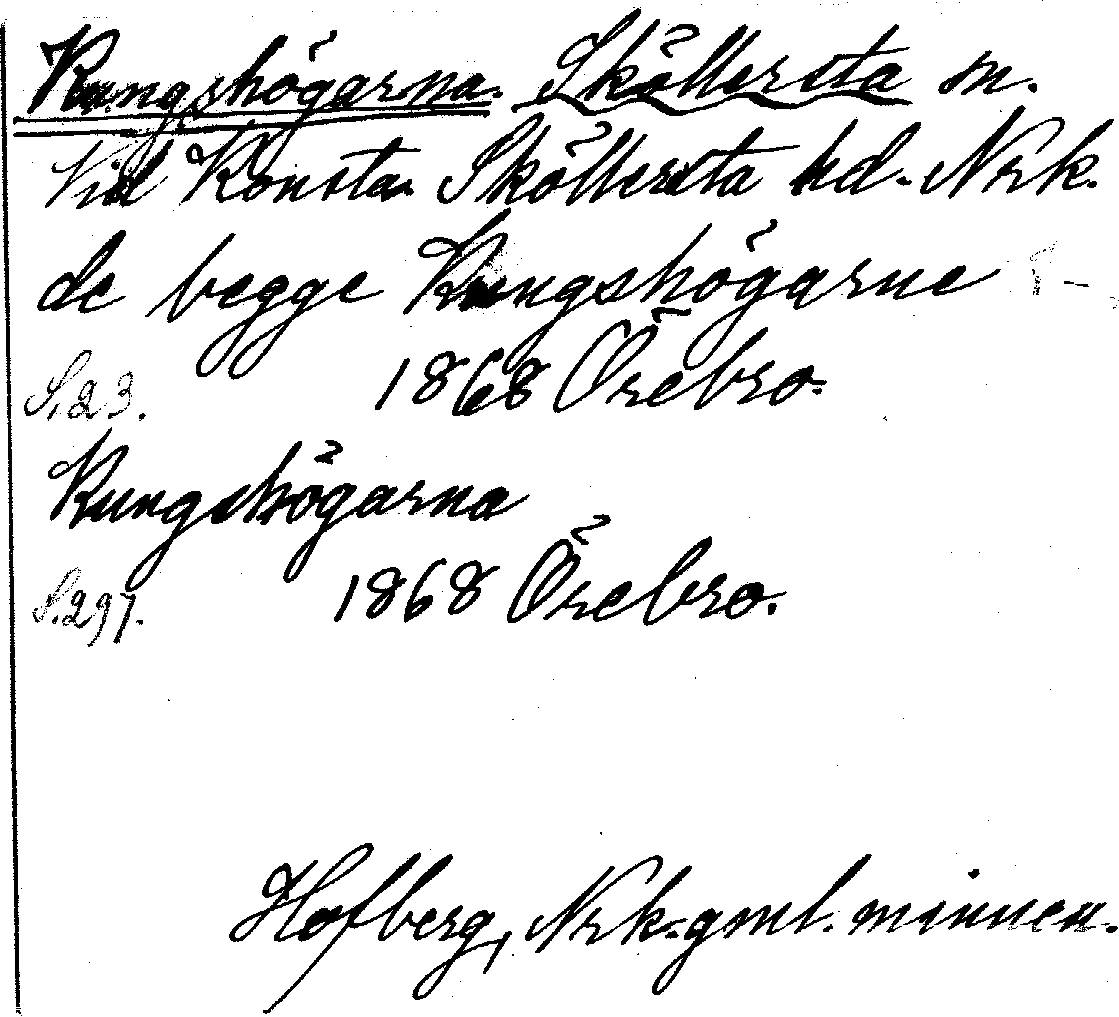 Kungshögarna. Sköllersta sn.
Vid Konsta Sköllersta hd. Nrk.
de begge Kungshögarne
S.23. 1868 Örebro.
Kungshögarna
S.297. 1868 Örebro.
Hofberg, Nrk. gml. minnen.